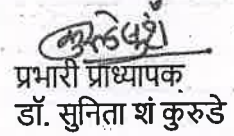 प्रभारी प्राध्यापक
डॉ. सुनिता शं कुरुडे